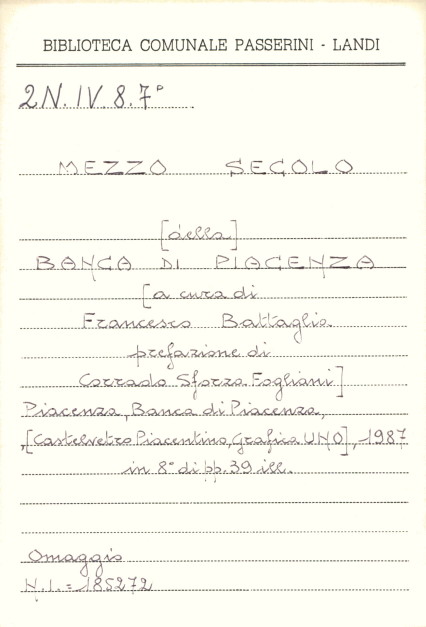 BIBLIOTECA COMUNALE PASSERINI - LANDI
2N.IV.8.7°
MEZZO SECOLO
[della]
BANCA DI PIACENZA
[a cura di
Francesco Battaglia
prefazione di
Corrado Sforza Fogliani]
Piacenza, Banca di Piacenza,
,[Castelvetro Piacentino, Grafica UNO], 1987
in 8° di pp. 39 ill.
Omaggio
N.I. = 185272